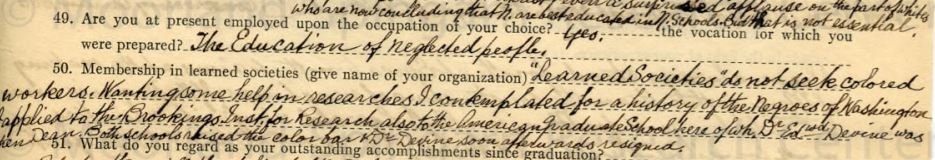 who are now concluding that N. are best educated in N. Schools. But that is not essential.
49. Are you at present employed upon the occupation of your choice? Yes; the vocation for which you
were prepared? The Education of neglected people.
50. Membership in learned societies (give name of your organization) "Learned Societies" do not seek colored
workers. Wanting some help in researches I contemplated for a history of the Negroes of Washington
applied to the Brookings Inst. for Research also to the American Graduate School here of wh. Dr Edwd Devine was
then Dean. Both schools raised the color bar & Dr Devine soon afterwards resigned.
51. What do you regard as your outstanding accomplishments since graduation?